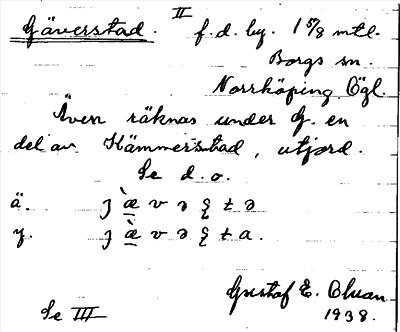 Gäverstad. II f. d. by. 1 5/8 mtl.
Borgs sn.
Norrköping Ögl.
Även räknas under G. en
del av Hämmerstad, utjord.
Se d. o.
ä.
y.
Gustaf E. Bluan
1938.
Se III